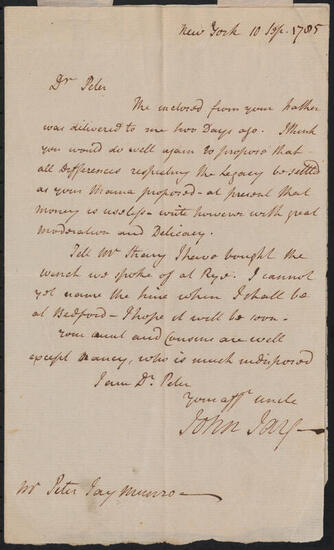 New York 10 Sep. 1785
Dr. Peter
The inclosed from your father
was delivered to me two Days ago. I think
you would do well again to propose that
all Differences respecting the Legacy be settled
as your Mama proposed — at present that
money is useless — write however with great
moderation and Delicacy.
Tell Mr I have bought the
wench we spoke of at Rye. I cannot
yet name the time when I shall be
at Bedford — I hope it will be soon —
your aunt and Cousins are well
except Nancy, who is much indisposed
I am Dr. Peter
Your affte. uncle
John Jay —
Mr Peter Jay Munro —